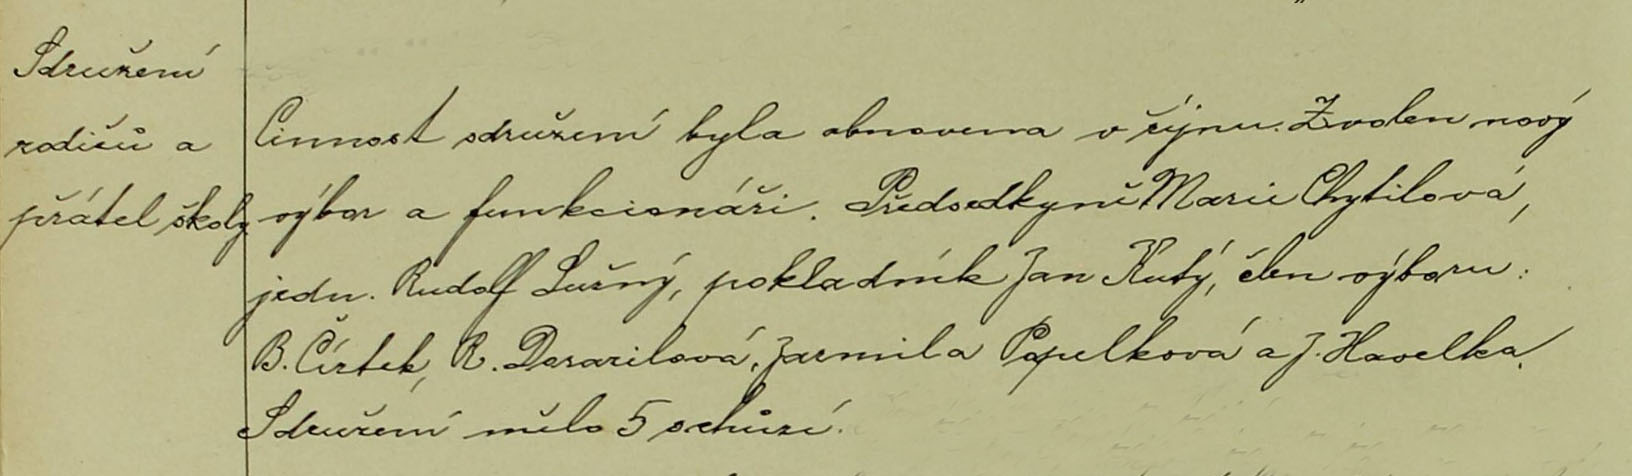 Sdružení
rodičů a
přátel školy
Činnost sdružení byla obnovena v říjnu. Zvolen nový
výbor a funkcionáři. Předsedkyně Marie Chytilová,
jedn. Rudolf Lušný, pokladník Jan Kutý, člen výboru:
B. Čírtek, R. Dorazilová, Jarmila Popelková a J. Havelka.
Sdružení mělo 5 schůzí.